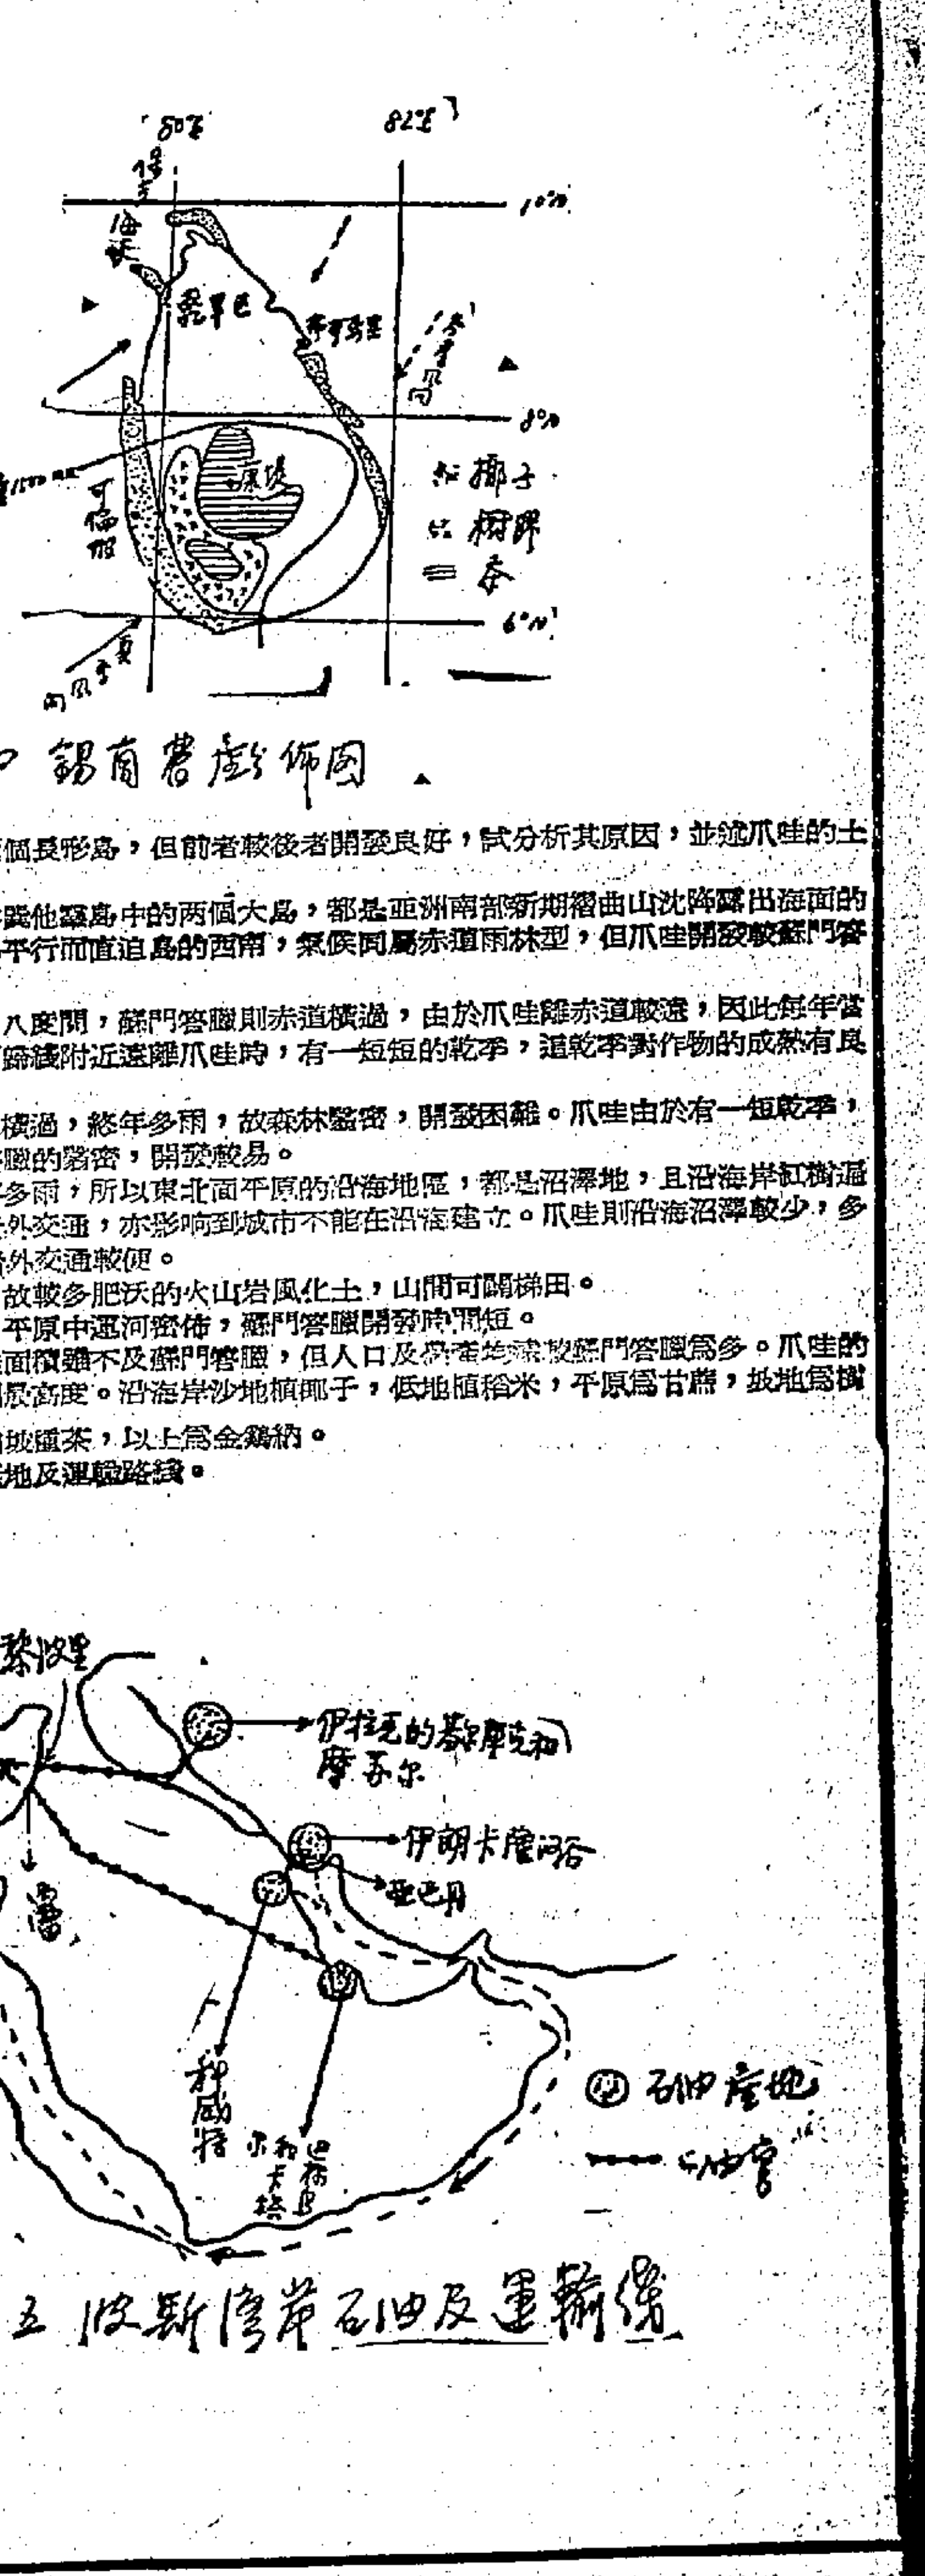 80°E 82°E
保克海峽
10°N
8°N
康堤
椰子
樹膠
茶
可倫坡
6°N
夏季風向
錫蘭農產分佈図
個長形島，但前者較後者開發良好，試分析其原因，並述爪哇的土
巽他羣島中的两個大島，都是亚洲南部新期褶曲山沈降露出海面的
平行而直迫島的西南，氣候同屬赤道雨林型，但爪哇開發較蘇門答
八度間，蘇門答臘則赤道橫過，由於爪哇離赤道較遠，因此每年當
歸綫附近遠離爪哇時，有一短短的乾季，這乾季對作物的成熟有良
橫過，終年多雨，故森林緊密，開發困難。爪哇由於有一短乾季，
臘的緊密，開發較易。
多雨，所以東北面平原的沿海地區，都是沼澤地，且沿海岸紅樹遍
外交通，亦影响到城市不能在沿海建立。爪哇則沿海沼澤較少，多
外交通較便。
故較多肥沃的火山岩風化土，山間可闢梯田。
平原中運河密佈，蘇門答臘開發時間短。
面積雖不及蘇門答臘，但人口及農產均較蘇門答臘爲多。爪哇的
展高度。沿海岸沙地植椰子，低地植稻米，平原爲甘蔗，坡地爲樹
坡種茶，以上爲金鷄納。
地及運輸路綫。
黎波里
伊拉克的基尔庫克和
摩苏尔
伊朗卡薩河谷
亚巴丹
科威特
石油產地
石油管
五 波斯灣岸石油及運輸綫